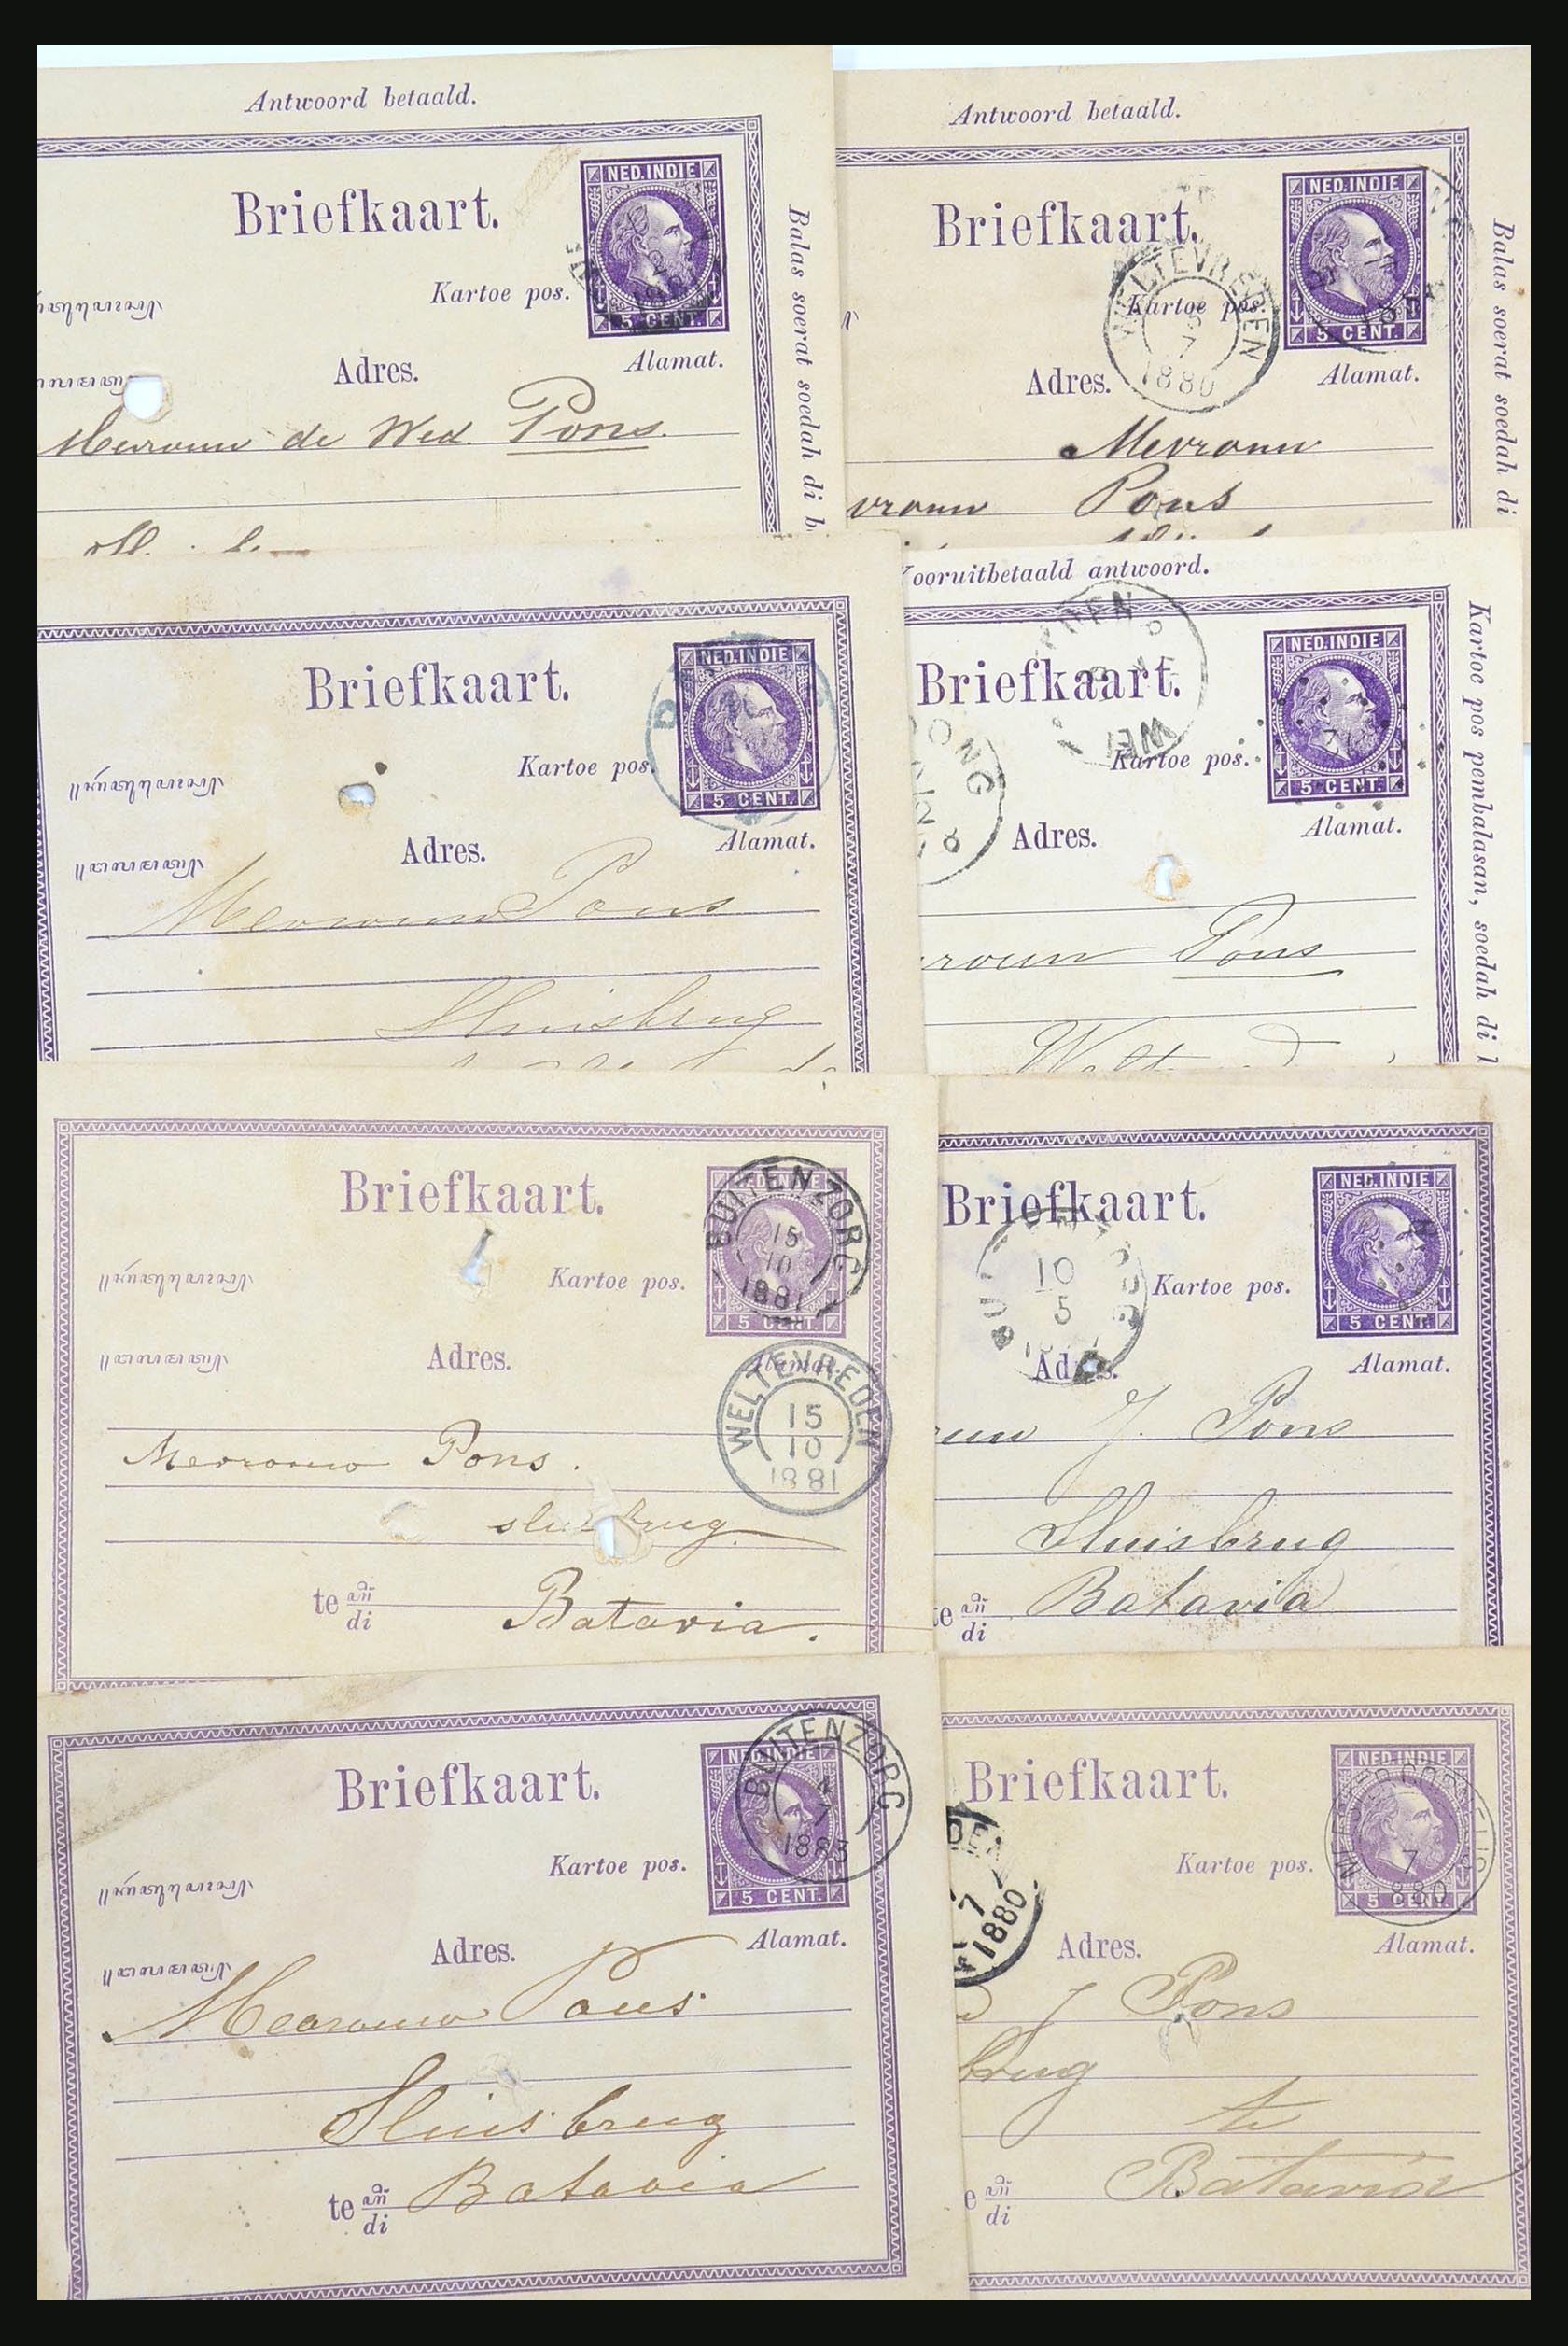 Antwoord betaald.
Briefkaart.
NED. INDIE
5 CENT.
Kartoe pos.
Adres.
Alamat.
Balas soerat soedah di b
Mevrouw de Wed. Pons.
Antwoord betaald.
Briefkaart.
NED. INDIE
5 CENT.
WELTEVREDEN
7
1880
Kartoe pos.
Adres.
Alamat.
Balas soerat soedah di
Mevrouw
vrouw Pons
Briefkaart.
NED. INDIE
5 CENT.
Kartoe pos.
Adres.
Alamat.
Mevrouw Pons
Sluisbrug
ooruitbetaald antwoord.
Briefkaart.
NED. INDIE
5 CENT.
Kartoe pos.
Adres.
Alamat.
Kartoe pos pembalasan, soedah di l
rouw Pons
Briefkaart.
NED. INDIE
5 CENT.
BUITENZORG
15
10
1881
Kartoe pos.
Adres.
Alamat.
WELTEVREDEN
15
10
1881
Mevrouw Pons.
sluisbrug
te di
Batavia.
Briefkaart.
NED. INDIE
5 CENT.
10
5
Kartoe pos.
Adres.
Alamat.
J. Pons
Sluisbrug
te di
Batavia
Briefkaart.
NED. INDIE
5 CENT.
BUITENZORG
7
1883
Kartoe pos.
Adres.
Alamat.
Mevrouw Pons
Sluisbrug
te di
Batavia
Briefkaart.
NED. INDIE
5 CENT.
MEESTER CORNELIS
7
880
DEN
7
1880
Kartoe pos.
Adres.
Alamat.
J Pons
brug
te
e di
Batavia